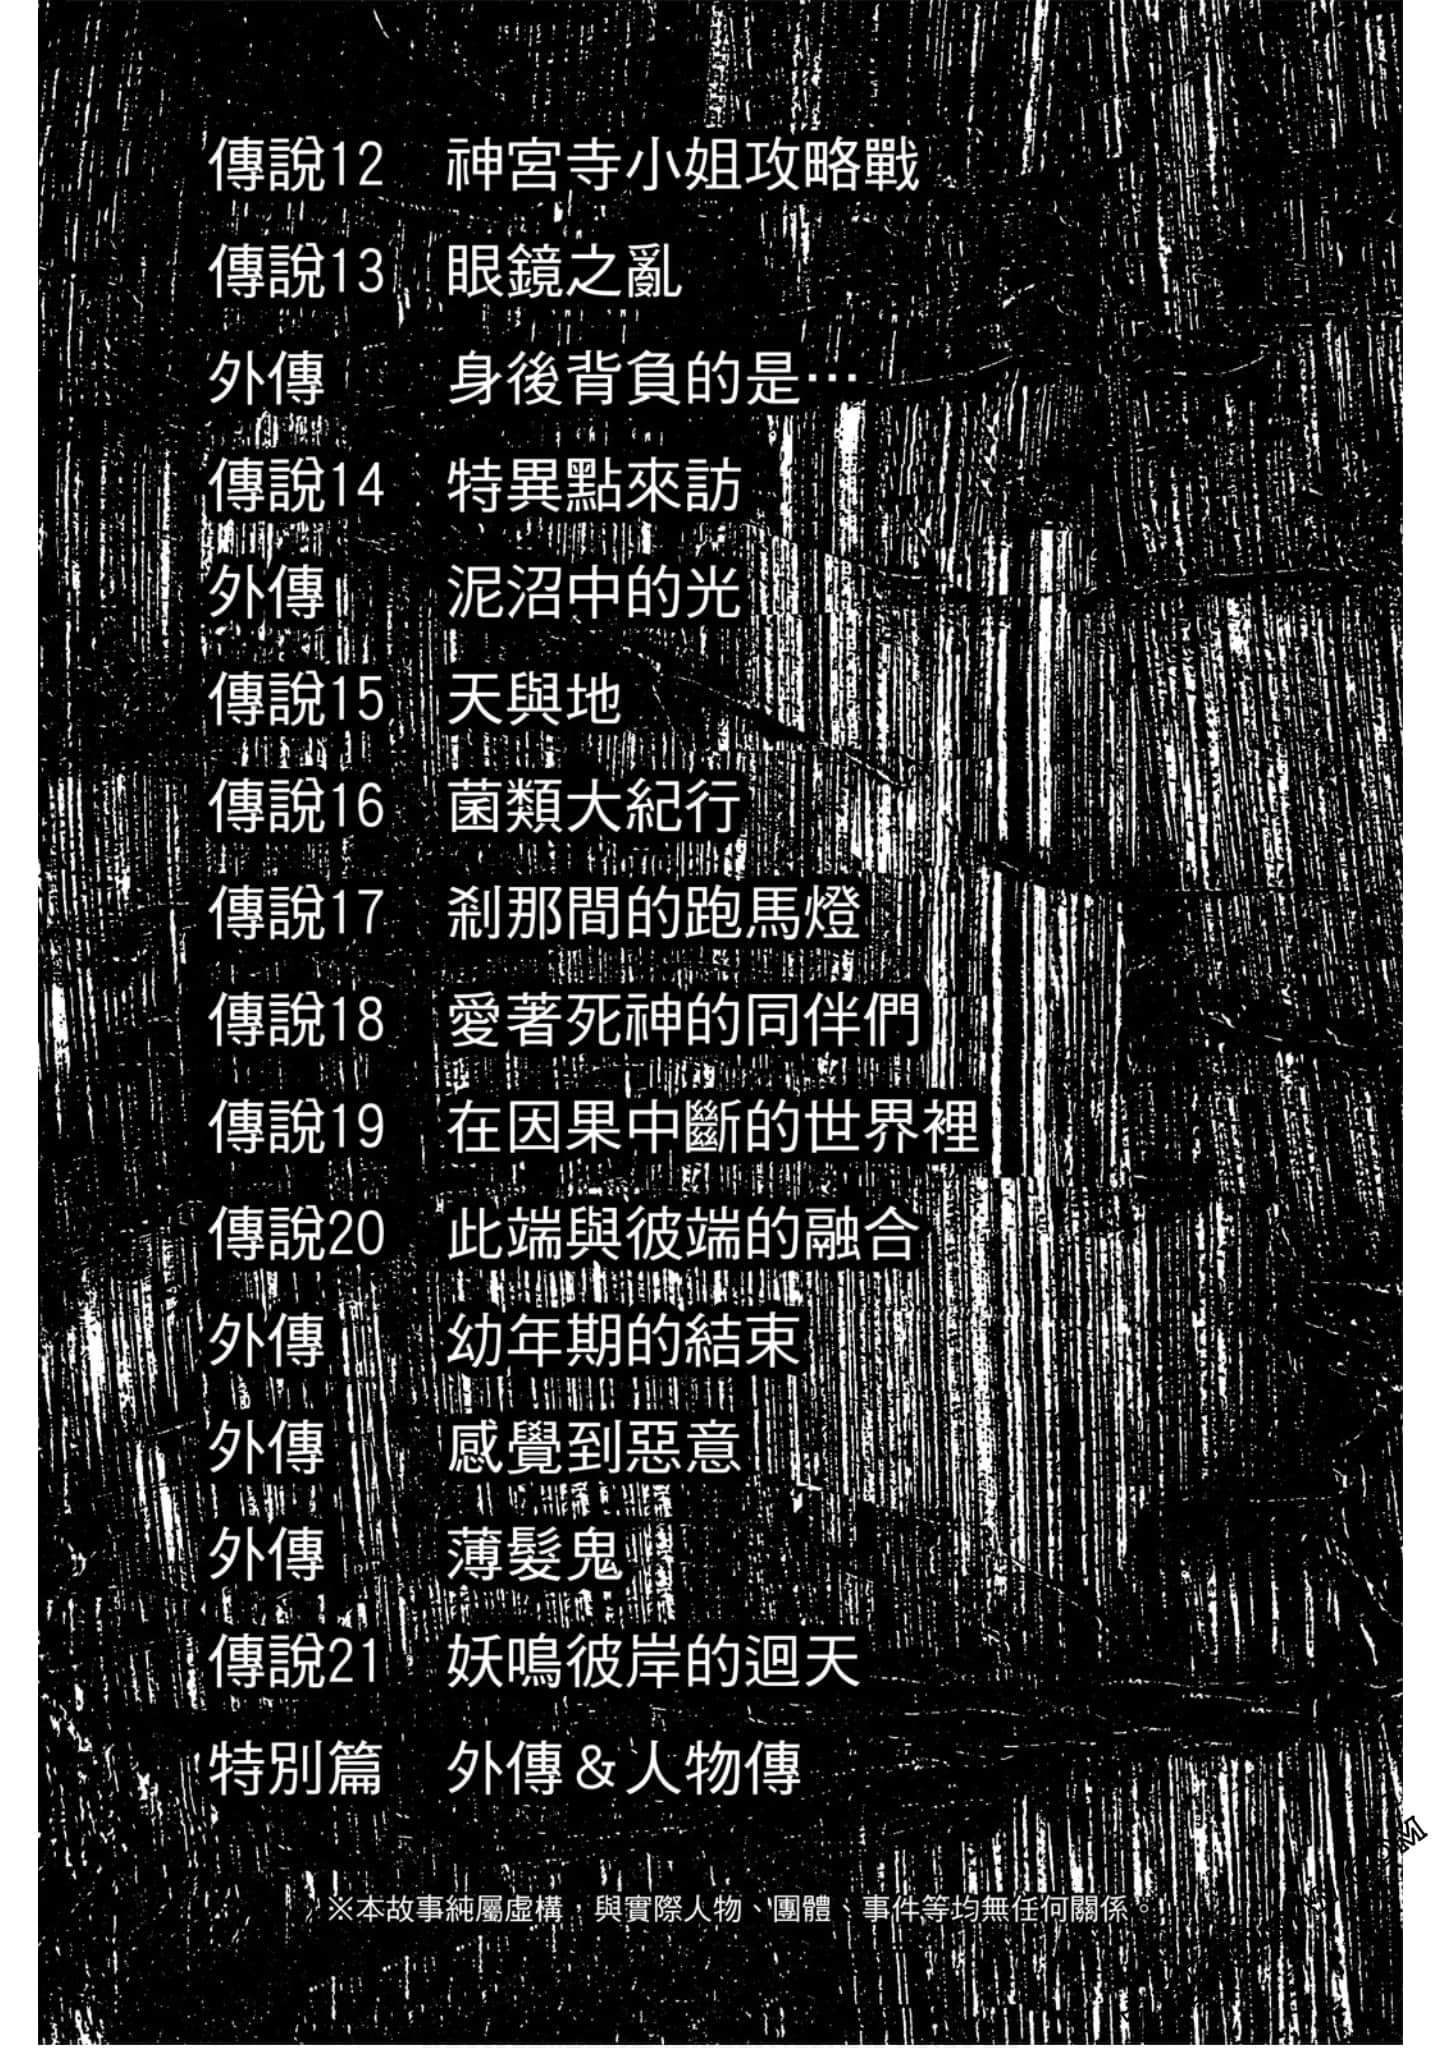 傳說12　神宮寺小姐攻略戰
傳說13　眼鏡之亂
外傳　身後背負的是…
傳說14　特異點來訪
外傳　泥沼中的光
傳說15　天與地
傳說16　菌類大紀行
傳說17　剎那間的跑馬燈
傳說18　愛著死神的同伴們
傳說19　在因果中斷的世界裡
傳說20　此端與彼端的融合
外傳　幼年期的結束
外傳　感覺到惡意
外傳　薄髮鬼
傳說21　妖鳴彼岸的迴天
特別篇　外傳＆人物傳
※本故事純屬虛構，與實際人物、團體、事件等均無任何關係。